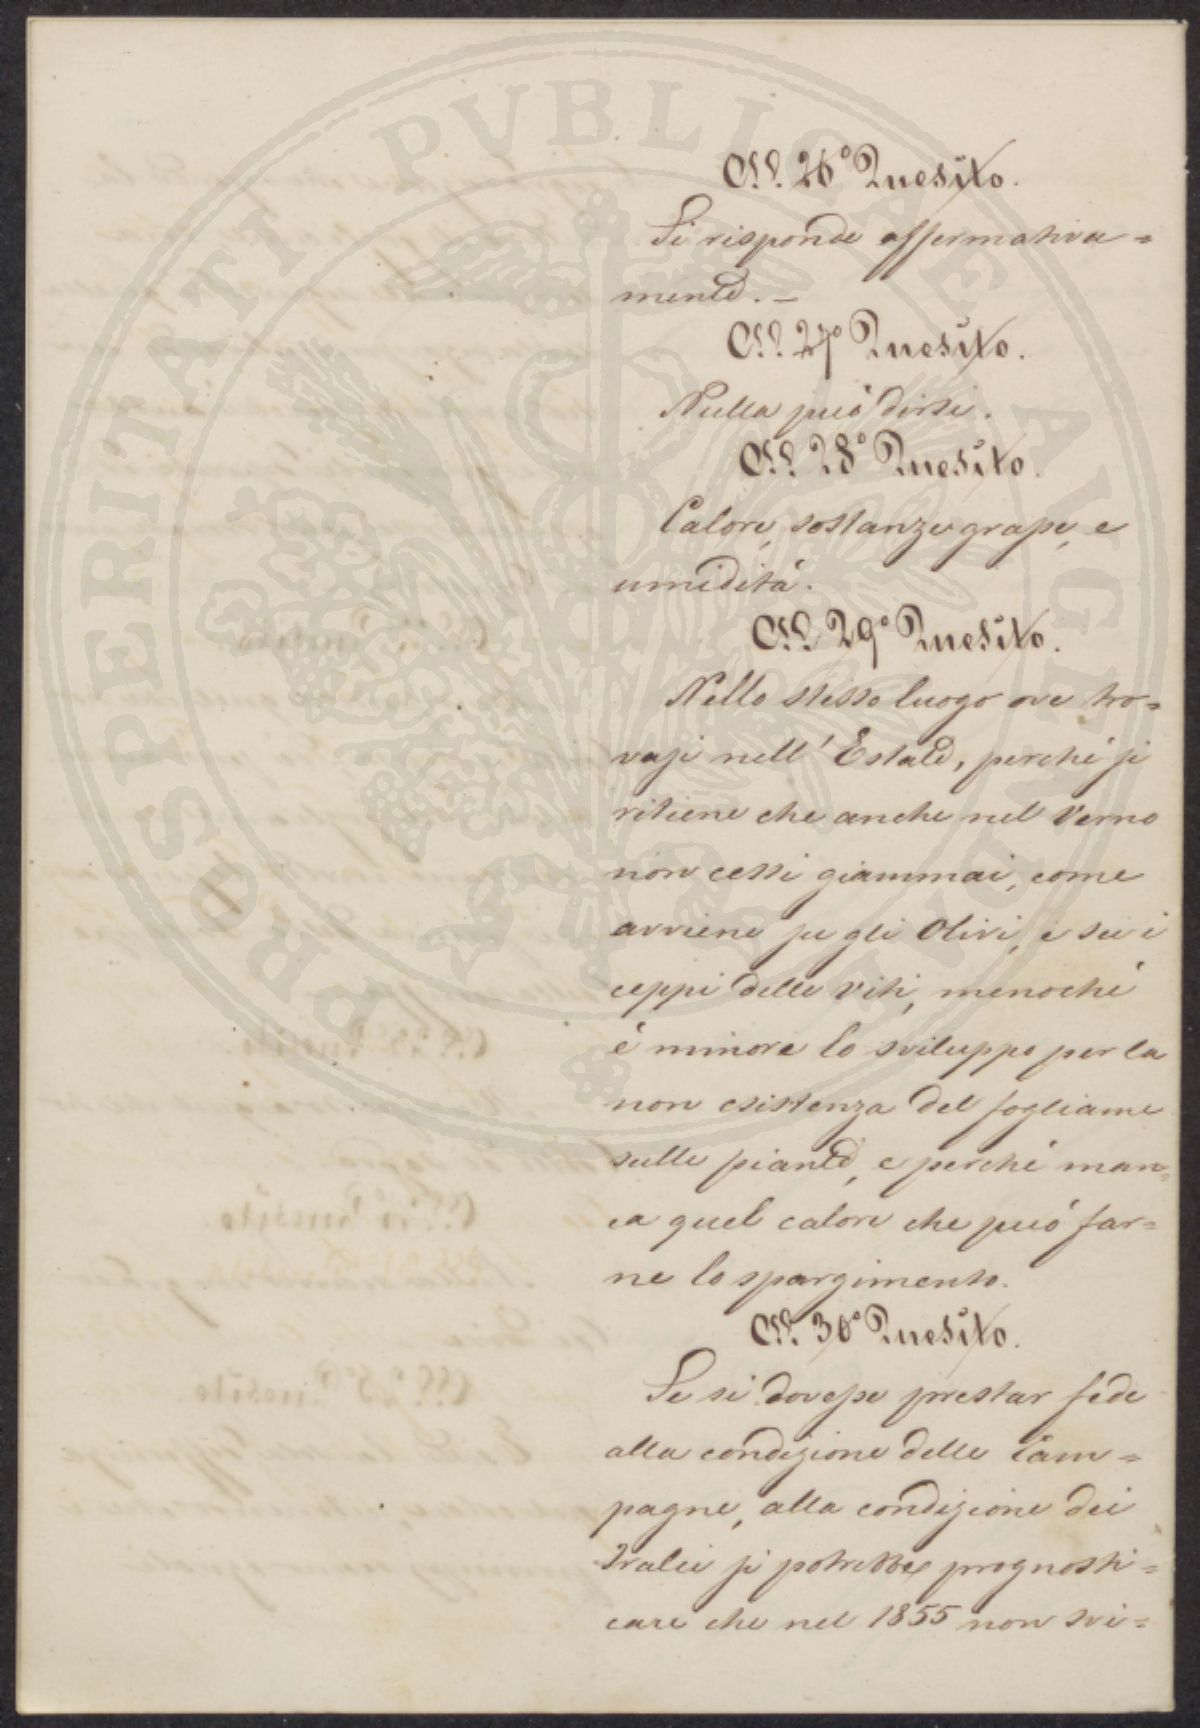 All. 26º Quesito.
Si risponde affermativa=
mente. –
All. 27º Quesito.
Nulla può dirsi.
All. 28º Quesito.
Calore, sostanze grasse, e
umidità.
All. 29º Quesito.
Nello stesso luogo ove tro=
vasi nell' Estate, perchè si
ritiene che anche nel Verno
non cessi giammai, come
avviene su gli Olivi, e su i
ceppi delle viti, menochè
è minore lo sviluppo per la
non esistenza del fogliame
sulle piante, e perchè man=
ca quel calore che può far=
ne lo spargimento.
All. 30º Quesito.
Se si dovesse prestar fede
alla condizione delle Cam=
pagne, alla condizione dei
Tralci si potrebbe prognosti=
care che nel 1855 non svi=
PROSPERITATI PVBLICAE AVGENDAE